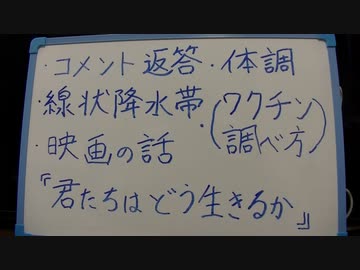 ・コメント返答・体調
・線状降水帯・(ワクチン調べ方)
・映画の話
『君たちはどう生きるか』